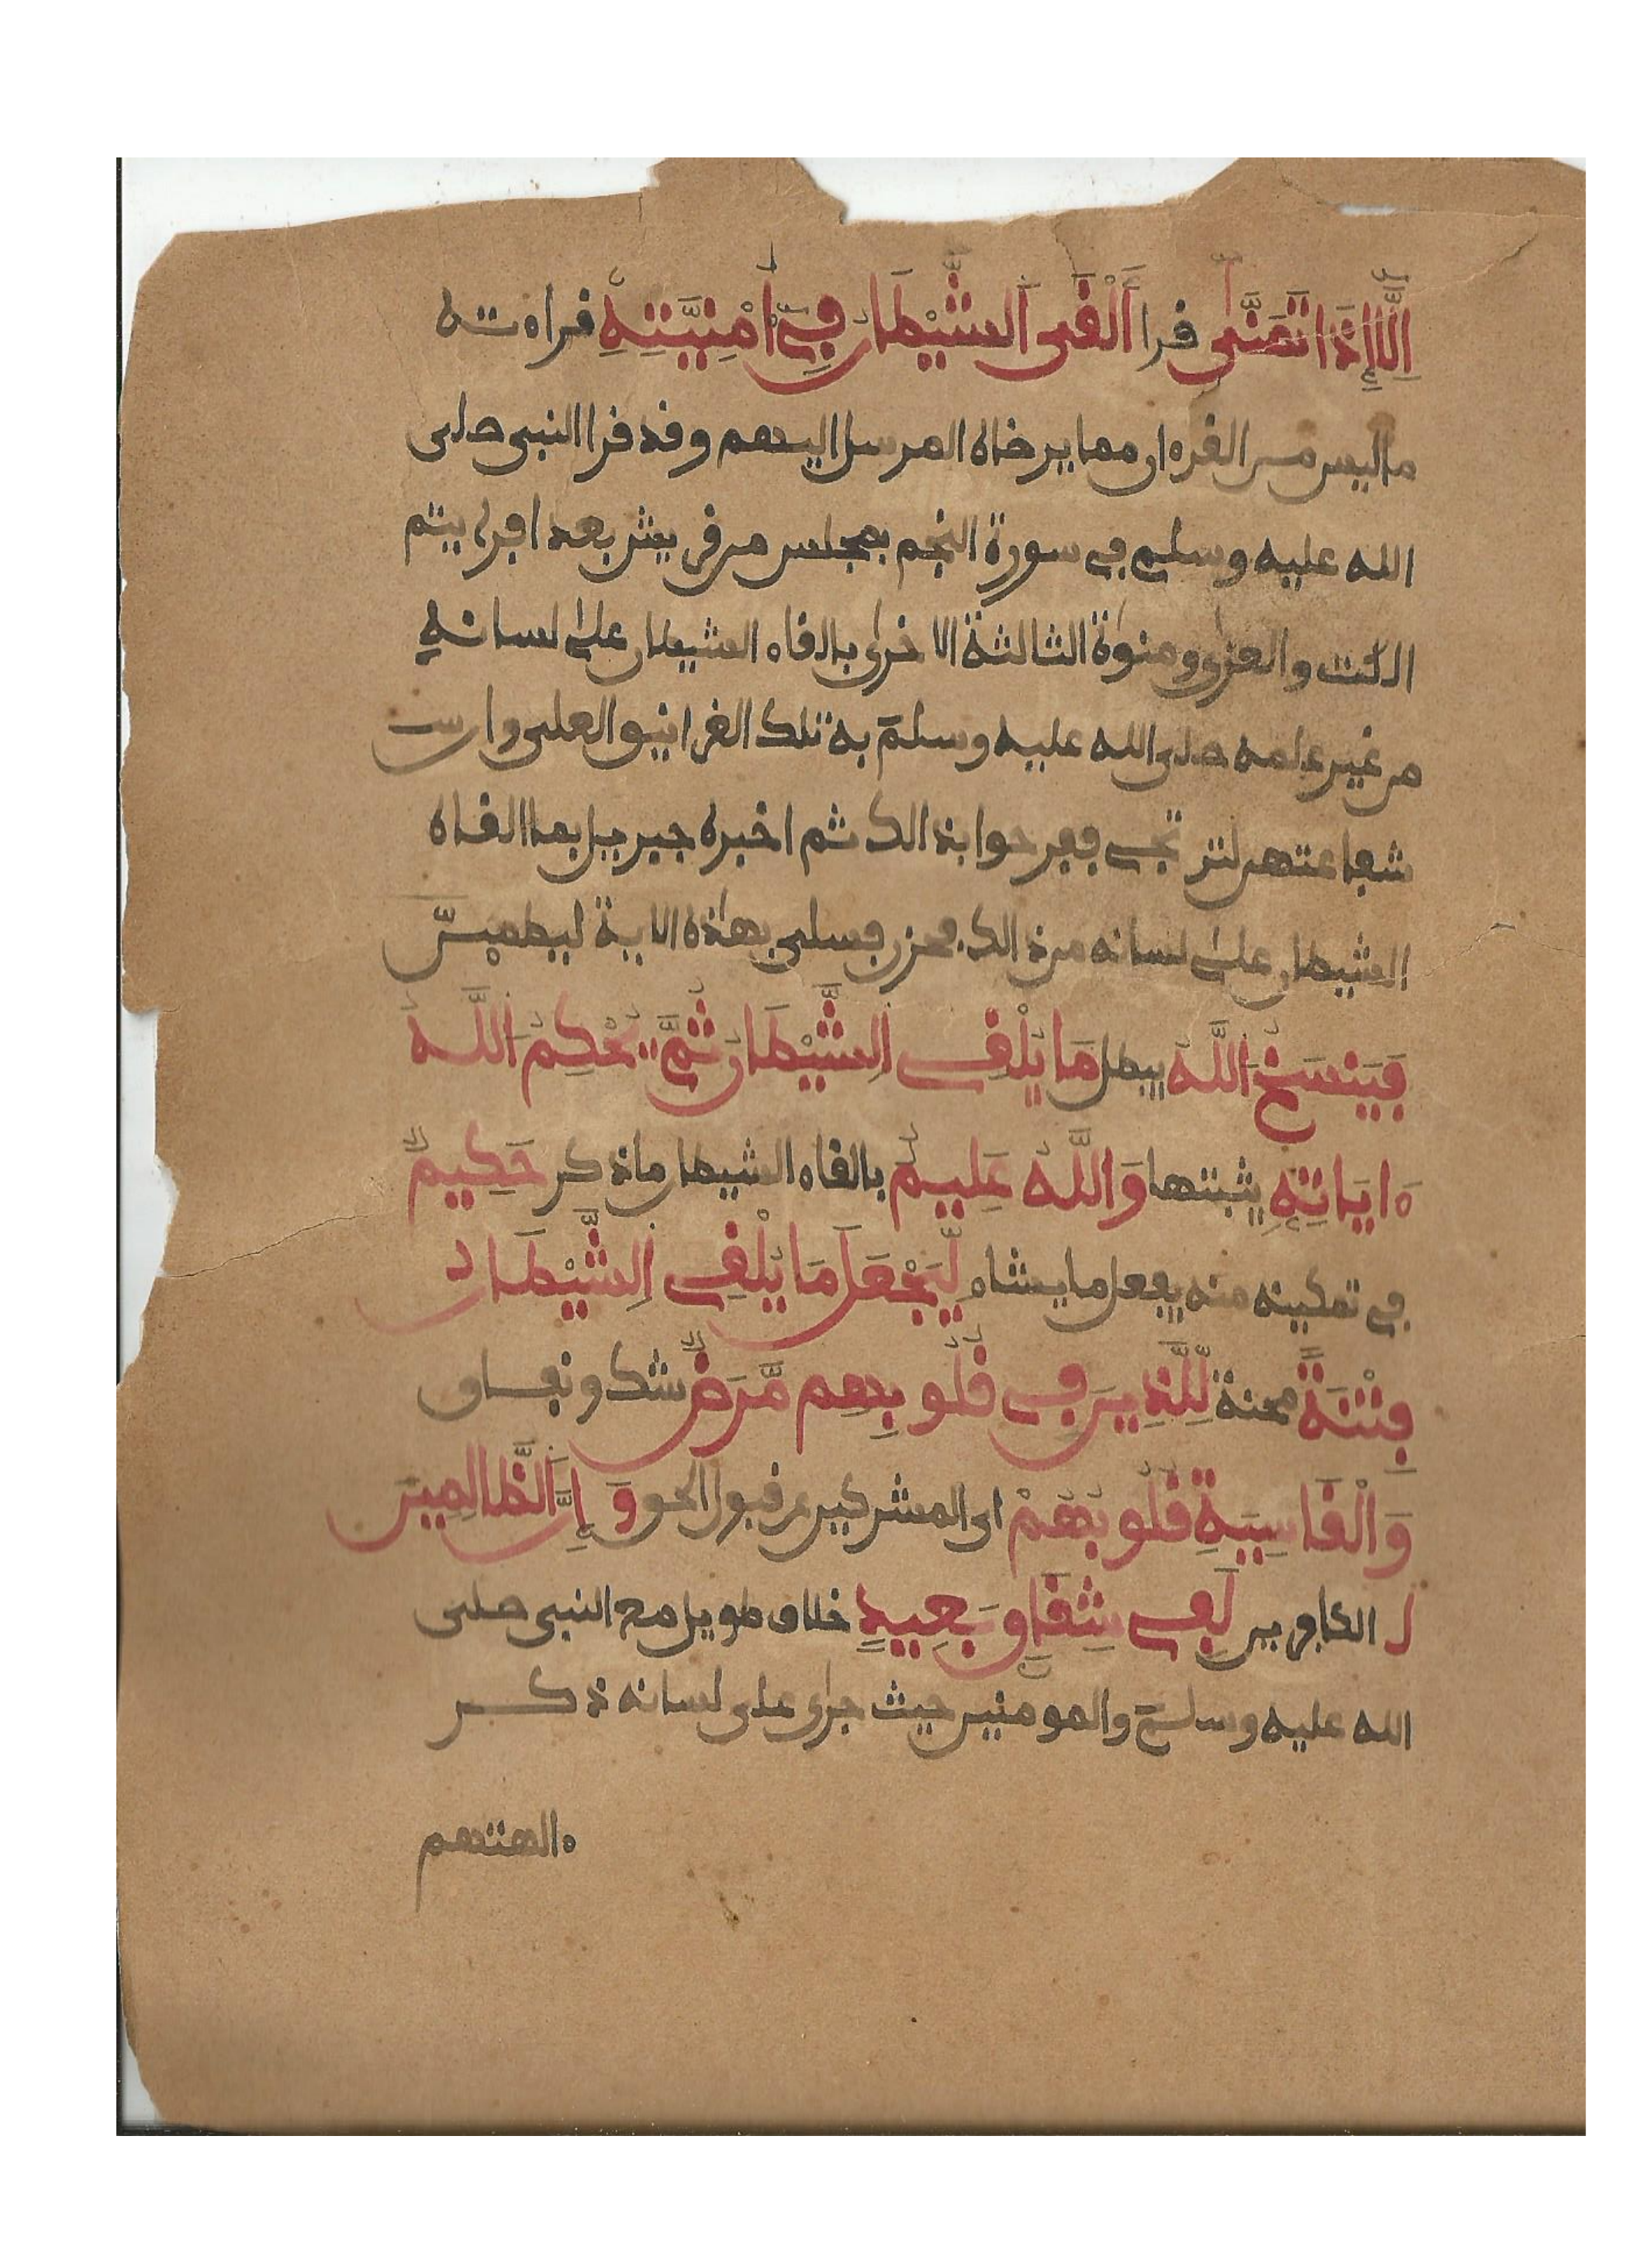 اِلَّا إِذَا تَمَنَّىٰ قرا أَلْقَى اَلشَّيْطَانُ فِےٓ أُمْنِيَّتِهِ قراءته
ما ليس من القرءان مما يرضاه المرسل اليهم وقد قرا النبى صلى
الله عليه وسلم في سورة النجم بمجلس من قريش بعد افرايتم
اللت والعزى ومنوة الثالثة الاخرى بالقاء الشيطان على لسانه
من غير علمه صلى الله عليه وسلم به تلك الغرانيق العلى وان
شفاعتهن لترتجى ففرحوا بذالك ثم اخبره جبريل بما القاه
الشيطان على لسانه من ذالك فحزن فسلى بهذه الاية ليطمين
فَيَنسَخُ اُللَّهُ يبطل مَا يُلْقِے اِلشَّيْطَانُ ثُمَّ يُحْكِمُ اُللَّهُ
ءَايَاتِهِ يثبتها وَاللَّهُ عَلِيمٌ بالقاء الشيطان ما ذكر حَكِيمٌ
في تمكينه منه يفعل ما يشاء لِّيَجْعَلَ مَا يُلْقِے اِلشَّيْطَانُ
فِتْنَةً محنة لِّلَّذِينَ فِى قُلُوبِهِم مَّرَضٌ شك ونفاق
وَالْقَاسِيَةِ قُلُوبُهُمْ اى المشركين عن قبول الحق وَإِنَّ اَلظَّالِمِينَ
ا الكافرين لَفِے شِقَاقٍ بَعِيدٍ خلاف طويل مع النبى صلى
الله عليه وسلم والمومنين حيث جرى على لسانه ذكر
ءالهتهم